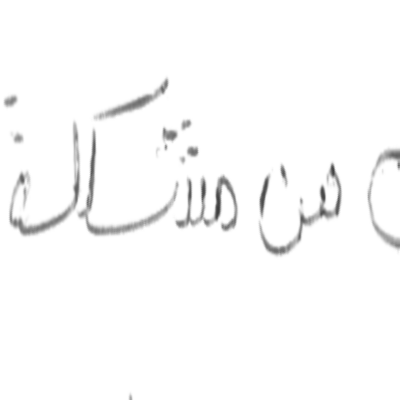 من مشكلة